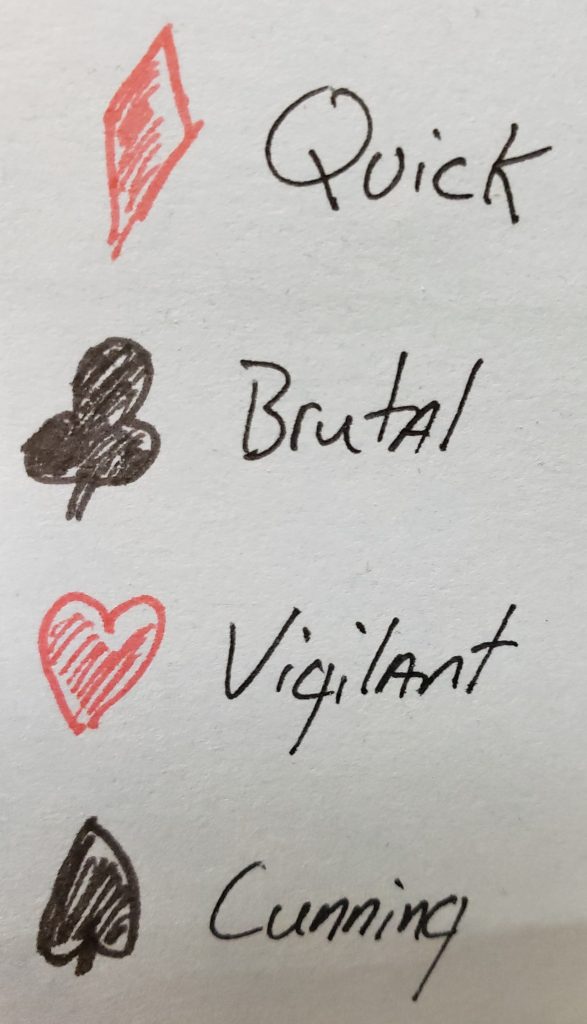 Quick
Brutal
Vigilant
Cunning